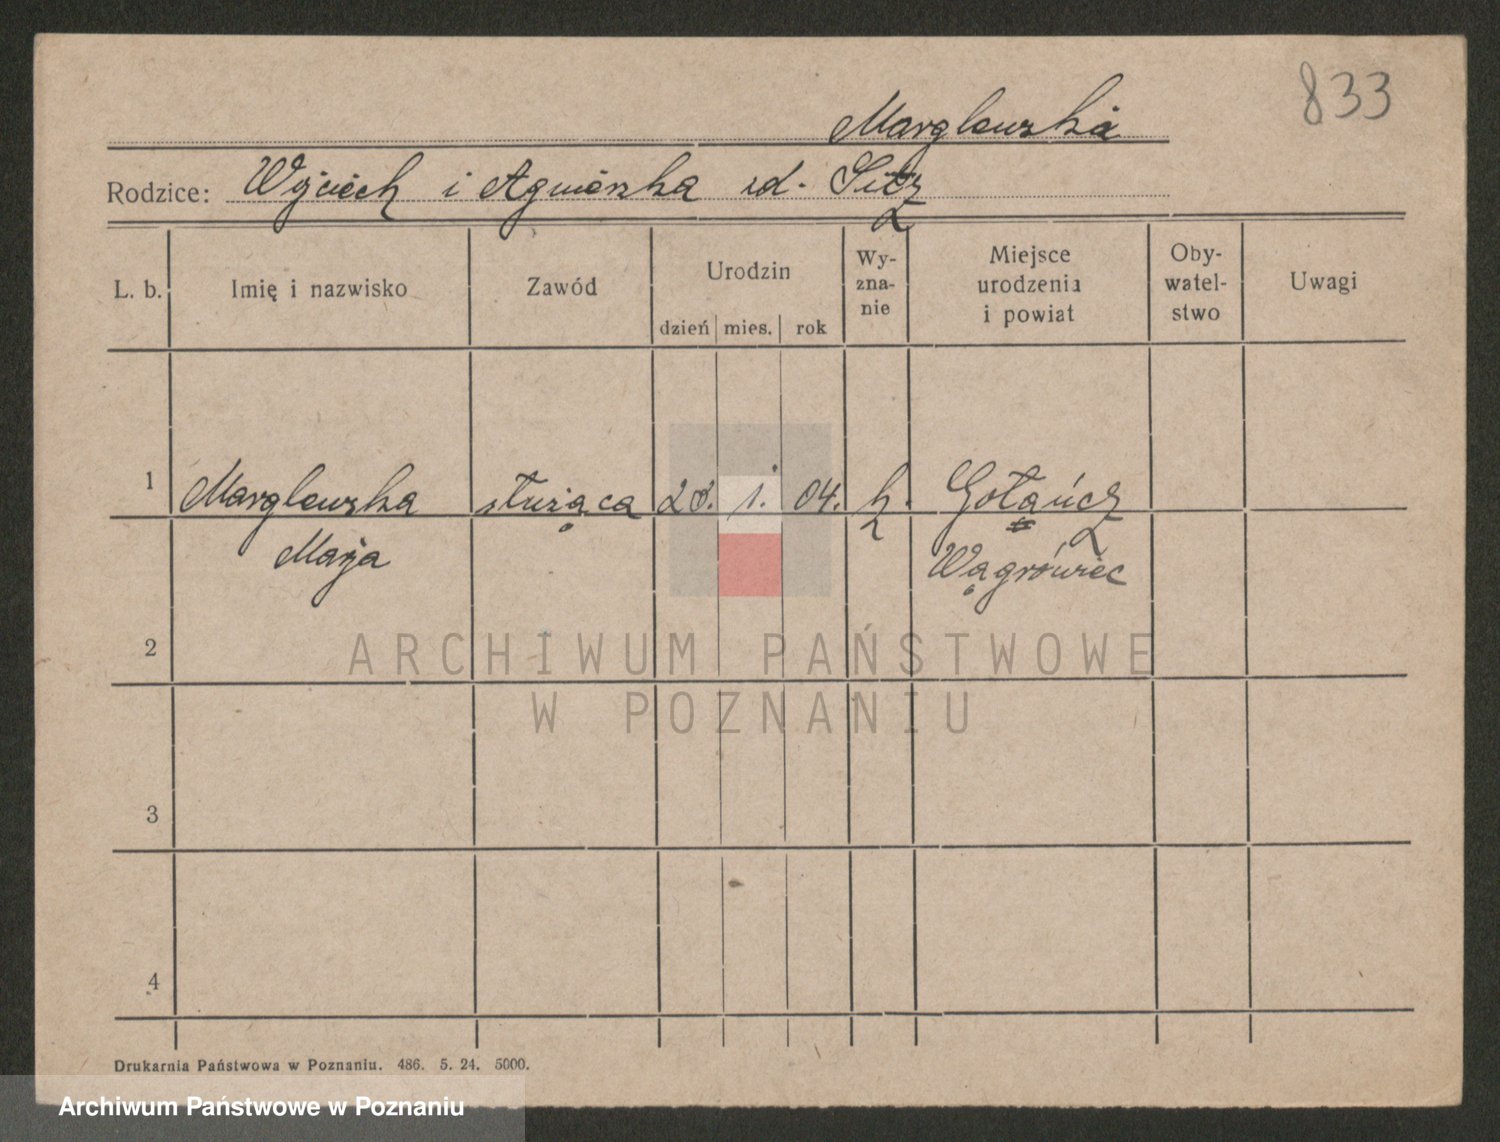 833
Marglewska
Rodzice: Wojciech i Agnieszka zd.
L. b. Imię i nazwisko Zawód Urodzin dzień mies. rok Wy-zna-nie Miejsce urodzenia i powiat Oby-watel-stwo Uwagi
1 Marglewska służąca 28. 1. 04. k. Gołańcz
Marja Wągrówiec
2
ARCHIWUM PAŃSTWOWE
W POZNANIU
3
4
Drukarnia Państwowa w Poznaniu. 486. 5. 24. 5000.
Archiwum Państwowe w Poznaniu